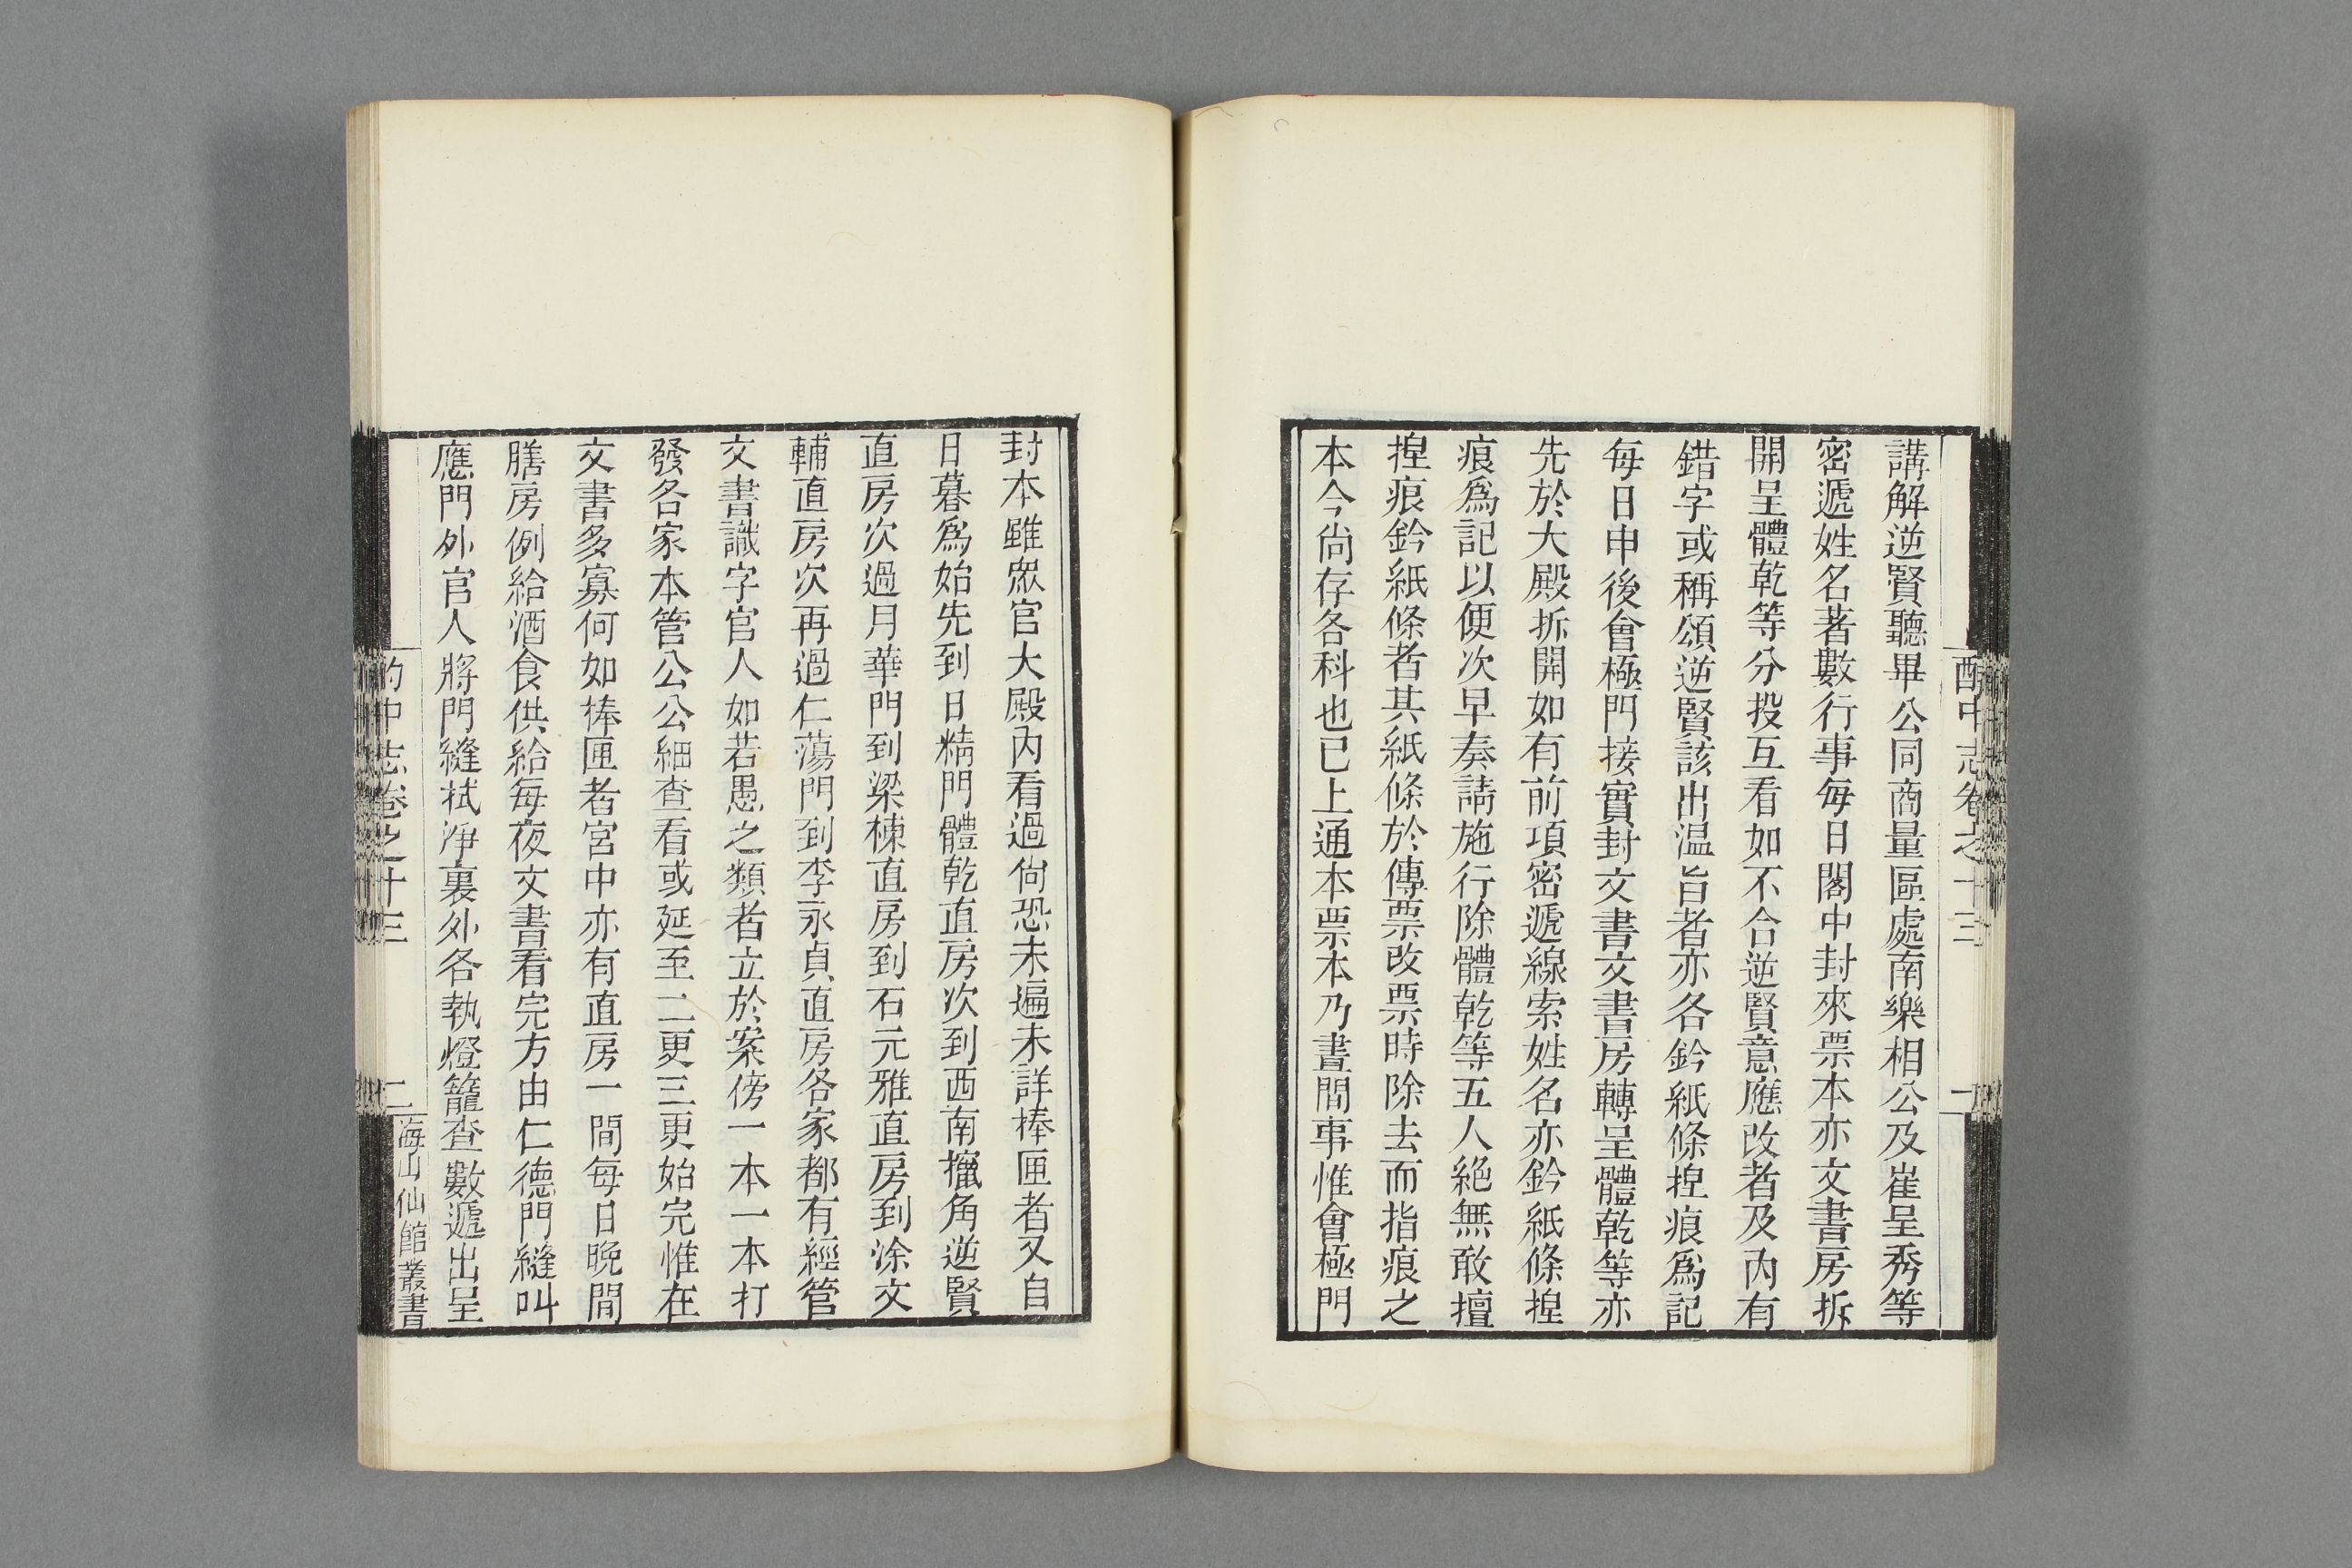 酌中志卷之十三
一
講解逆賢聽畢公同商量區處南樂相公及崔呈秀等
密遞姓名者數行事每日閣中封來票本亦文書房拆
開呈體乾等分投互看如不合逆賢意應改者及內有
錯字或稱頌逆賢該出温旨者亦各鈐紙條揑痕爲記
每日申後會極門接實封文書文書房轉呈體乾等亦
先於大殿拆開如有前項密遞線索姓名亦鈐紙條揑
痕爲記以便次早奏請施行除體乾等五人絕無敢擅
揑痕鈐紙條者其紙條於傳票改票時除去而指痕之
本今尙存各科也已上通本票本乃晝間事惟會極門
封本雖眾官大殿內看過尙恐未遍未詳捧匣者又自
日暮爲始先到日精門體乾直房次到西南㩉角逆賢
直房次過月華門到梁棟直房到石元雅直房到涂文
輔直房次再過仁蕩門到李永貞直房各家都有經管
文書識字官人如若愚之類者立於案傍一本一本打
發各家本管公公細查看或延至二更三更始完惟在
文書多寡何如捧匣者宮中亦有直房一間每日晚間
膳房例給酒食供給每夜文書看完方由仁德門縫叫
應門外官人將門縫拭淨裏外各執燈籠查數遞出呈
酌中志卷之十三
二
海山仙館叢書